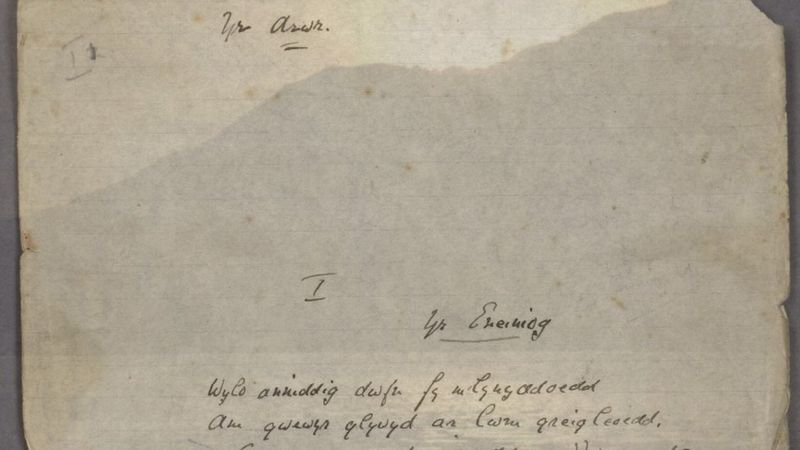 Yr Arwr.
I
Yr Eneiniog
Wylo anniddig dwfn fy mlynyddoedd
Am gwewyr glywyd ar lwm greigleoedd,